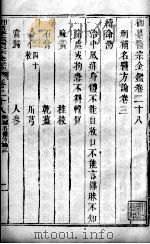 御纂醫宗金鑑卷二十八
刪補名醫方論卷三
續命湯
治中風痱身體不能自收口不能言冒昧不知
痛處或拘急不得轉側
麻黃　桂枝
石膏　乾薑
杏仁四十枚　川芎
當歸　人參